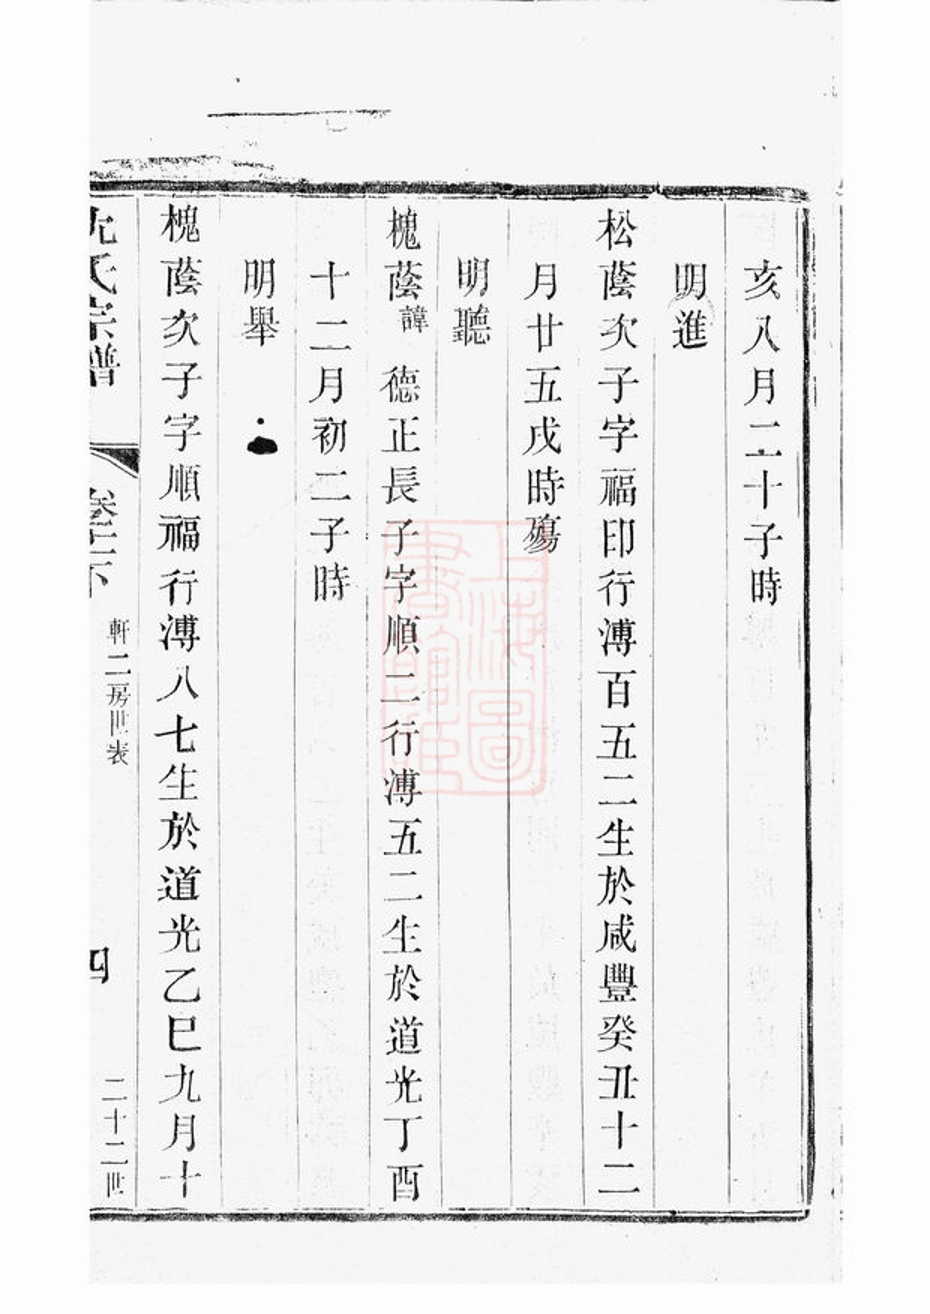 亥八月二十子時
明進
松蔭次子字福印行溥百五二生於咸豐癸丑十二
月廿五戌時殤
明聽
槐蔭諱德正長子字順二行溥五二生於道光丁酉
十二月初二子時
明舉
槐蔭次子字順福行溥八七生於道光乙巳九月十
沈氏宗譜
軒二房世表
四
二十二世
上海圖書館藏